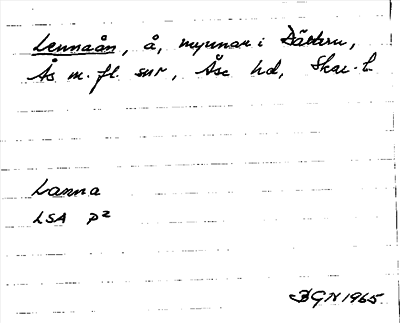 Lennaån, å, mynnar i Dättern,
Ås m. fl. snr, Åse hd, Skar. l.
Lanna
LSA P2
BGN 1965